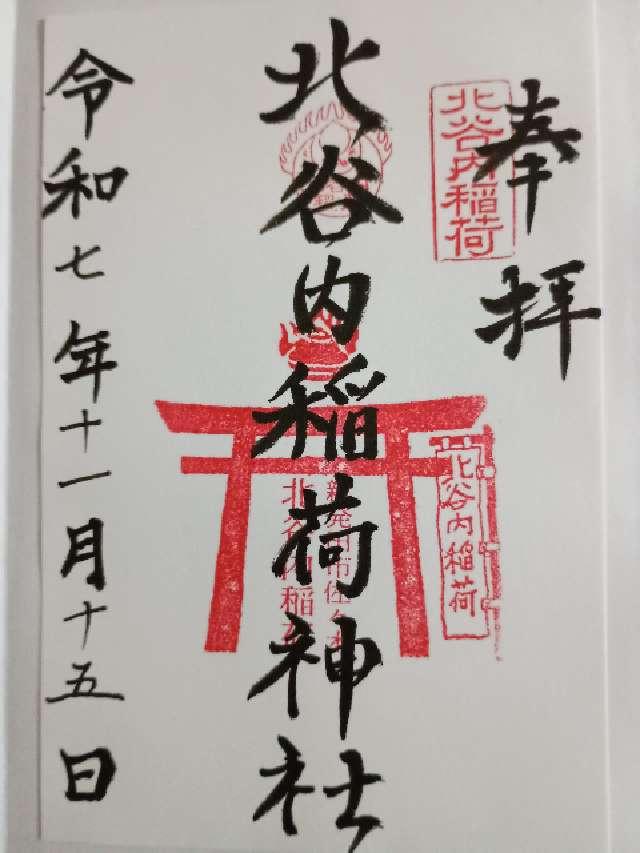 奉拝
北谷内稲荷
北谷内稲荷神社
北谷内稲荷
新発田市佐々木
北谷内稲荷
令和七年十一月十五日